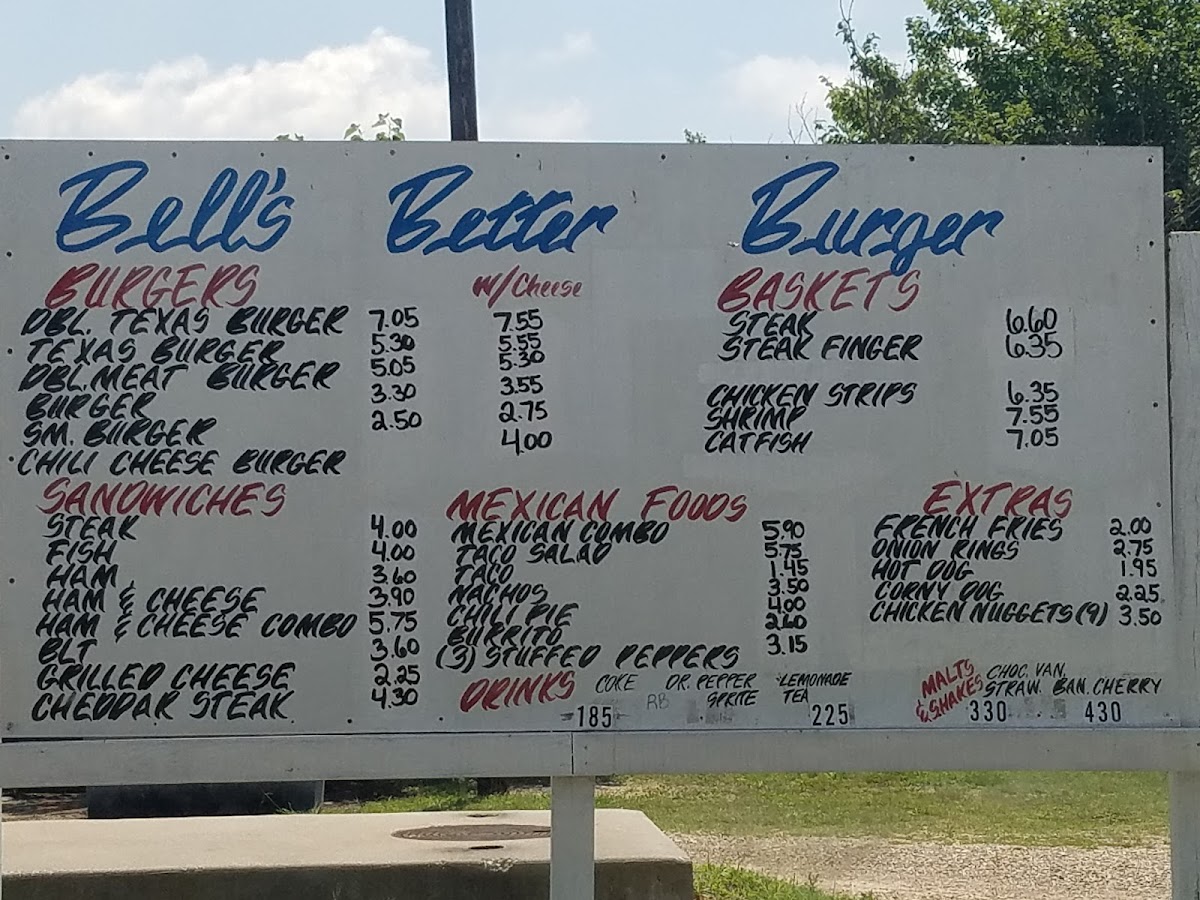 Bell's Better Burger
BURGERS w/Cheese
DBL. TEXAS BURGER 7.05 7.55
TEXAS BURGER 5.30 5.55
DBL. MEAT BURGER 5.05 5.30
BURGER 3.30 3.55
SM. BURGER 2.50 2.75
CHILI CHEESE BURGER 4.00
BASKETS
STEAK 6.60
STEAK FINGER 6.35
CHICKEN STRIPS 6.35
SHRIMP 7.55
CATFISH 7.05
SANDWICHES
STEAK 4.00
FISH 4.00
HAM 3.60
HAM & CHEESE 3.90
HAM & CHEESE COMBO 5.75
BLT 3.60
GRILLED CHEESE 2.25
CHEDDAR STEAK 4.30
MEXICAN FOODS
MEXICAN COMBO 5.90
TACO SALAD 5.75
TACO 1.45
NACHOS 3.50
CHILI PIE 4.00
BURRITO 2.60
(3) STUFFED PEPPERS 3.15
EXTRAS
FRENCH FRIES 2.00
ONION RINGS 2.75
HOT DOG 1.95
CORNY DOG 2.25
CHICKEN NUGGETS (9) 3.50
DRINKS COKE DR. PEPPER LEMONADE
RB SPRITE TEA
185 225
MALTS CHOC. VAN.
& SHAKES STRAW. BAN. CHERRY
330 430